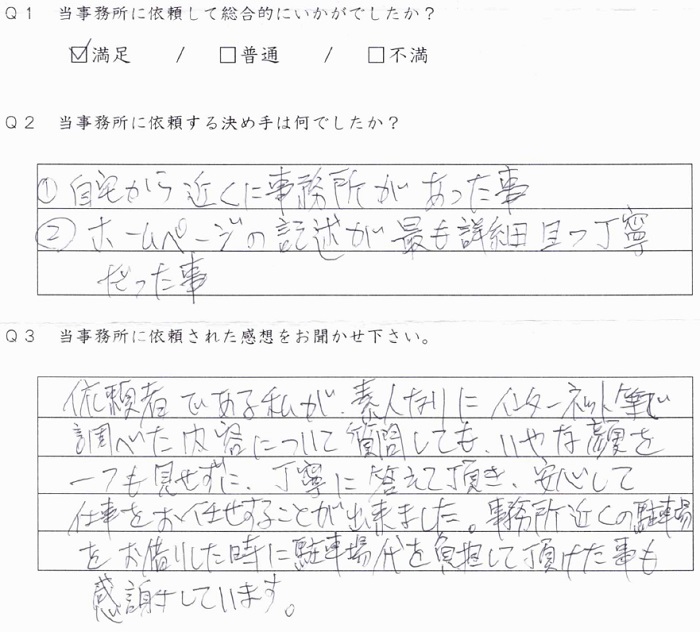 Q1 当事務所に依頼して総合的にいかがでしたか?
☑満足 / □普通 / □不満
Q2 当事務所に依頼する決め手は何でしたか?
① 自宅から近くに事務所があった事
② ホームページの記述が最も詳細且つ丁寧
だった事
Q3 当事務所に依頼された感想をお聞かせ下さい。
依頼者である私が、素人なりにインターネット等で
調べた内容について質問しても、いやな顔を
一つも見せずに、丁寧に答えて頂き、安心して
仕事をお任せすることが出来ました。事務所近くの駐車場
をお借りした時に駐車場代を負担して頂けた事も
感謝しています。